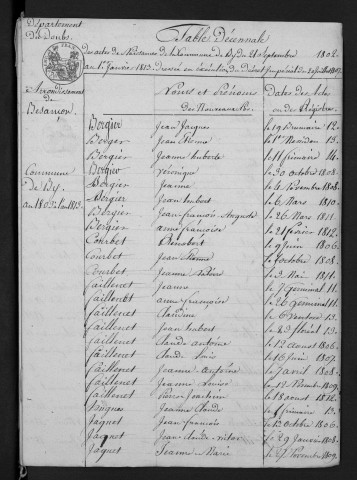 Département
Du Doubs.
Arrondissement
de
Besançon
Commune
de By.
Table Décennale
des actes de Naissance de la Commune de By du 21 Septembre 1802
au 1er Janvier 1813. Dressée en exécution du Décret Impérial du 20 Juillet 1807.
Noms et Prénoms des Nouveaux Nés.
Dates des Actes ou des Registres
Bergier Jean Jacques le 19 Brumaire 12
Bergier Jean
Bergier Jeanne huberte le 11 frimaire 14
Bergier Véronique le 30 octobre 1808
Bergier Jeanne le 4 Novembre 1808
Bergier Jean hubert le 6 Mars 1810
Bergier Jean-françois Auguste le 26 Mars 1811
Bergier anne françoise le 21 février 1812
Courbet le 9 Juin 1806
Courbet Jean le octobre 1808
Courbet Jeanne le 3 Mai 1811
faillenet Jeanne le 7 Germinal 11
faillenet anne françoise le 26 Germinal 11
faillenet Claudine le 6 Ventose 13
faillenet Jean hubert le 23 floréal 13
faillenet Claude antoine le 12 aout 1806
faillenet Claude Louis le 16 Juin 1807
faillenet Jeanne antoine le 7 avril 1808
faillenet Jeanne Louise le 12 Novembre 1809
faillenet Pierre Joachim le 18 aout 1812
Jeanne Claude le frimaire 13
Jaquet Jean françois le 13 octobre 1806
Jaquet Jean-claude-victor le 29 Janvier 1808
Jaquet Jeanne Marie le Novembre 1809